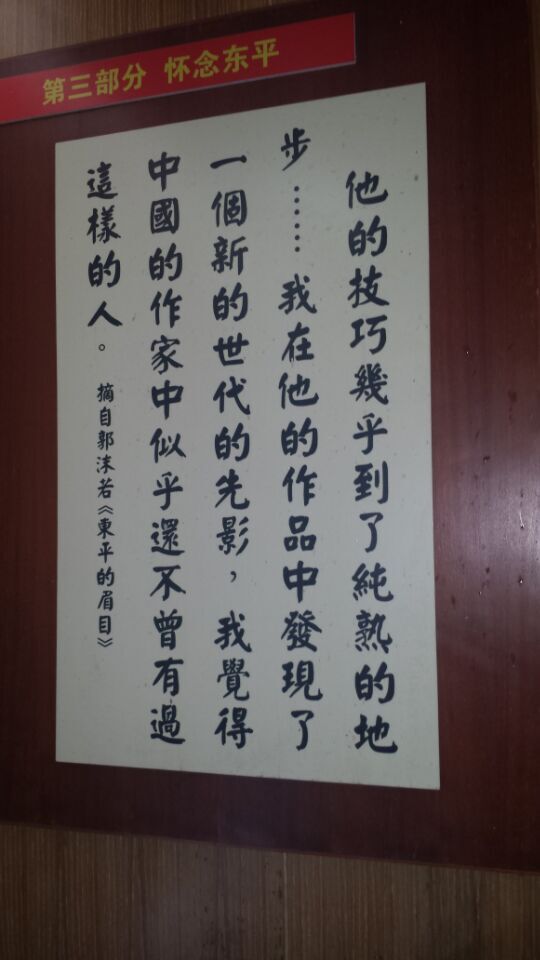 第三部分 怀念东平
他的技巧幾乎到了純熟的地
步……我在他的作品中發現了
一個新的世代的先影，我覺得
中國的作家中似乎還不曾有過
這樣的人。摘自郭沫若《東平的眉目》